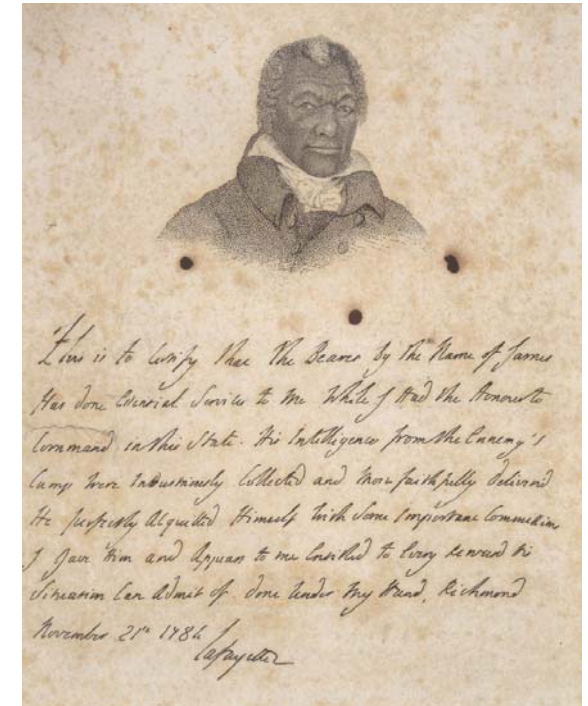 This is to Certify that the Bearer by the Name of James
Has done Essential Services to me While I Had the Honour to
Command in this State. His Intelligences from the Ennemy's
Camp were Industriously Collected and More faithfully deliverd
He perfectly Acquitted Himself with Some Important Commissions
I Gave Him and Appears to me Entitled to Every Reward his
Situation Can Admit of. Done Under My Hand, Richmond
November 21st 1784
Lafayette